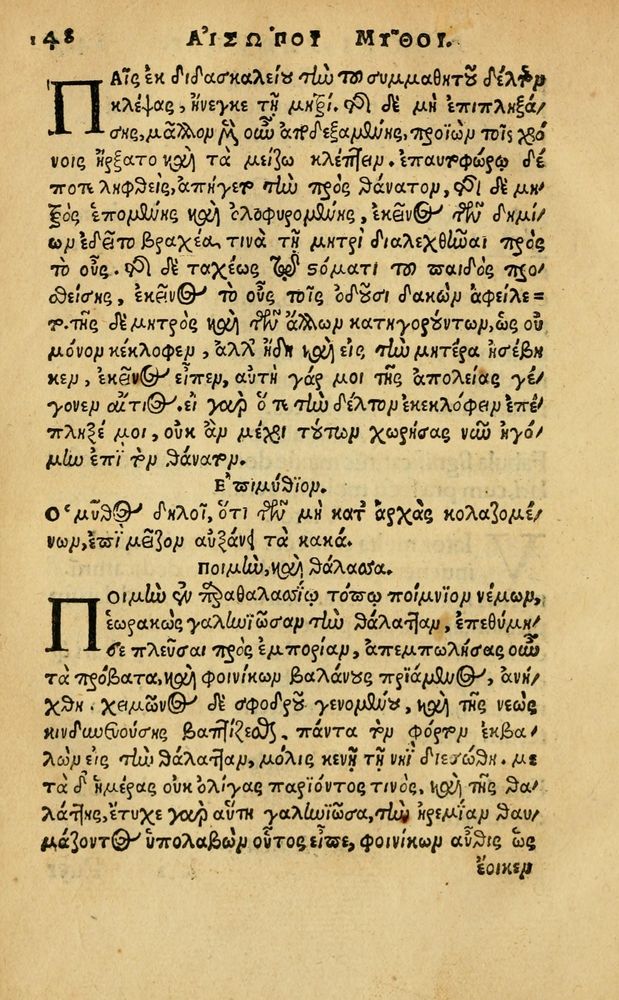 148 ΑἸΣΩΠΟΥ ΜΥ͂ΘΟΙ.
ΠΑῖς ἐκ διδασκαλείου τὴν τοῦ συμμαθητοῦ δέλτον
κλέψας, ἤνεγκε τῇ μητρί. τῆς δὲ μὴ ἐπιπληξά/
σης, μᾶλλον μὲν οὖν ἀποδεξαμένης, προϊὼν τοῖς χρό/
νοις ἤρξατο καὶ τὰ μείζω κλέπτειν. ἐπαυτοφώρῳ δέ
ποτε ληφθεὶς, ἀπήγετο τὴν πρὸς θάνατον, τῆς δὲ μη/
τρὸς ἑπομένης καὶ ὀλοφυρομένης, ἐκεῖνος τῶν δημί/
ων ἐδεῖτο βραχέα τινὰ τῇ μητρὶ διαλεχθῆναι πρὸς
τὸ οὖς. τῆς δὲ ταχέως τῷ στόματι τοῦ παιδὸς προ/
θείσης, ἐκεῖνος τὸ οὖς τοῖς ὀδοῦσι δακὼν ἀφείλε=
το. τῆς δὲ μητρὸς καὶ τῶν ἄλλων κατηγορούντων, ὡς οὐ
μόνον κέκλοφεν, ἀλλ' ἤδη καὶ εἰς τὴν μητέρα ἠσέβη
κεν, ἐκεῖνος εἶπεν, αὐτὴ γάρ μοι τῆς ἀπολείας γέ/
γονεν αἴτιος. εἰ γὰρ ὅτε τὴν δέλτον ἐκεκλόφειν ἐπέ/
πληξέ μοι, οὐκ ἂν μέχρι τούτων χωρήσας νῦν ἠγό/
μην ἐπὶ τὸν θάνατον.
Ἐπιμύθιον.
Ὁ μῦθος δηλοῖ, ὅτι τῶν μὴ κατ' ἀρχὰς κολαζομέ/
νων, ἐπὶ μεῖζον αὐξάνει τὰ κακά.
Ποιμὴν, καὶ θάλασσα.
ΠΟιμὴν ἐν παραθαλασσίῳ τόπῳ ποίμνιον νέμων,
ἑωρακὼς γαληνιῶσαν τὴν θάλατταν, ἐπεθύμη/
σε πλεῦσαι πρὸς ἐμπορίαν, ἀπεμπωλήσας οὖν
τὰ πρόβατα, καὶ φοινίκων βαλάνους πριάμενος, ἀνή/
χθη. χειμῶνος δὲ σφοδροῦ γενομένου, καὶ τῆς νεὼς
κινδυνευούσης βαπτίζεσθαι, πάντα τὸν φόρτον ἐκβα/
λὼν εἰς τὴν θάλατταν, μόλις κενῇ τῇ νηῒ διεσώθη. με
τὰ δ' ἡμέρας οὐκ ὀλίγας παριόντος τινὸς, καὶ τῆς θα/
λάττης, ἔτυχε γὰρ αὕτη γαληνιῶσα, τὴν ἠρεμίαν θαυ/
μάζοντος ὑπολαβὼν οὗτος εἶπε, φοινίκων αὖθις ὡς
ἔοικεν